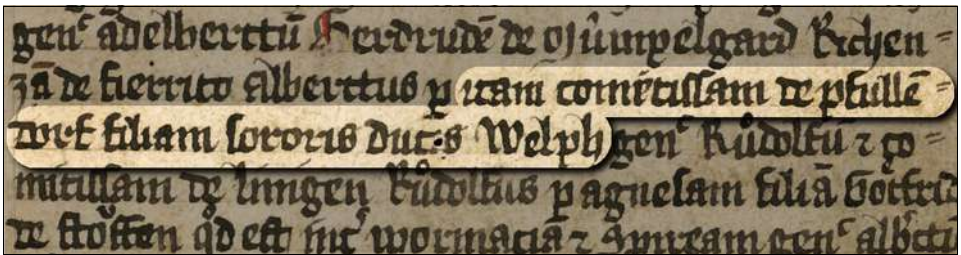 genᶜ adelberttū Gerdrudē de Mu̍mpelgard Richen=
zā de fierrito Alberttus ꝑ itam comitissam de pfullē=
dorf filiam sororis Ducis Welph genᶜ Růdolfū ⁊ co=
mitissam de liningen Růdolfus ꝑ agnesam filiā Gotfrid
de stoͮffen qd est intᶜ wormacia ⁊ Spiream genᶜ albttū